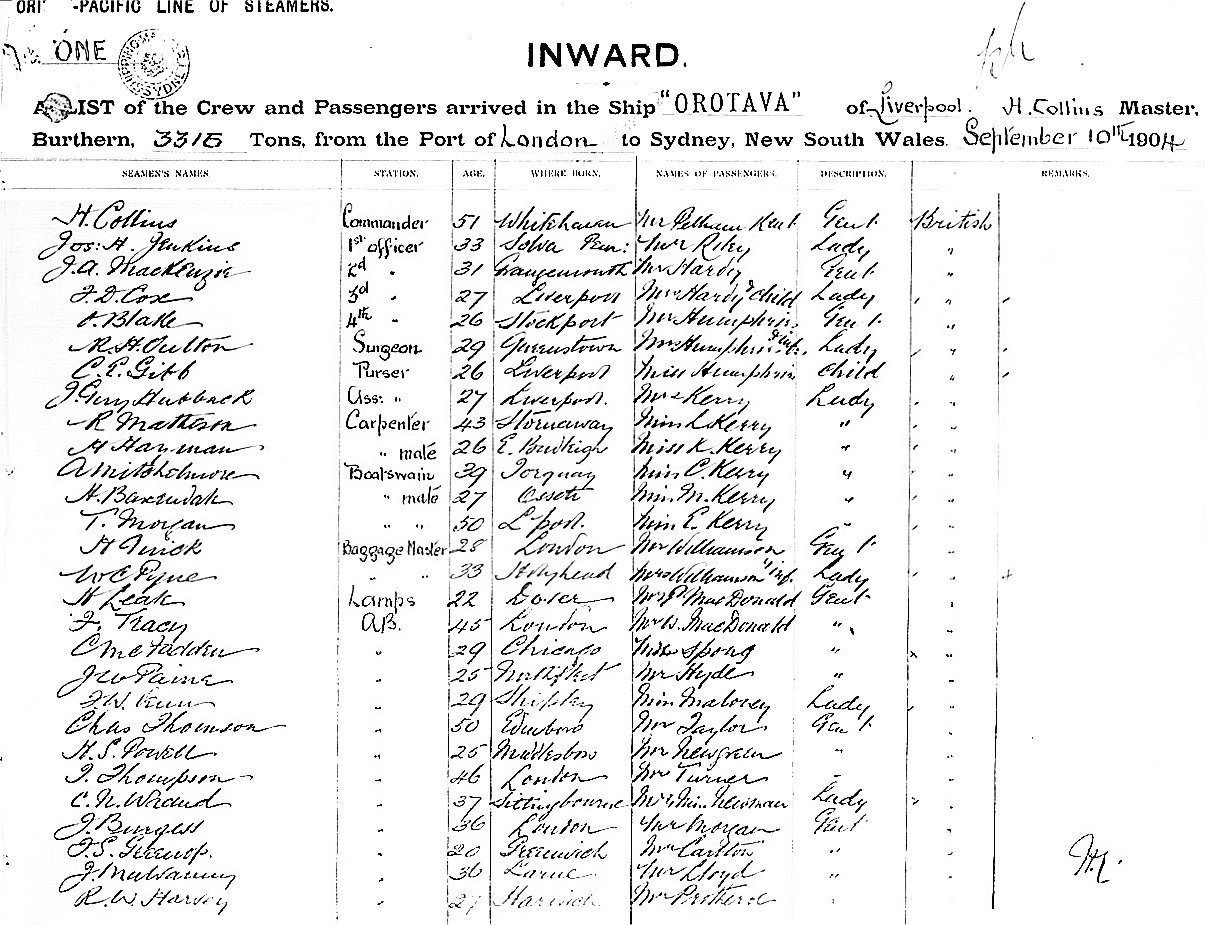 -PACIFIC LINE OF STEAMERS.
ONE
INWARD.
A LIST of the Crew and Passengers arrived in the Ship "OROTAVA" of Liverpool. H. Collins Master,
Burthern, 3315 Tons, from the Port of London to Sydney, New South Wales. September 10th 1904
SEAMEN'S NAMES. STATION. AGE. WHERE BORN. NAMES OF PASSENGERS. DESCRIPTION. REMARKS.
H. Collins Commander 51 Whitehaven Mr Pelham Kent Gent British
Jos: H. Jenkins 1st officer 33 Solva Pem: Mrs Riley Lady "
J. A. MacKenzie 2d " 31 Grangemouth Mr Hardy Gent "
J. D. Cox 3d " 27 Liverpool Mrs Hardy & child Lady "
Blake 4th " 26 Stockport Mr Humphris Gent "
R. H. Oulton Surgeon 29 Queenstown Mrs Humphris & inf. Lady "
C. E. Gibb Purser 26 Liverpool Miss Humphris child "
J. Hubback Ass: " 27 Liverpool. Mrs Kerry Lady "
R Matheson Carpenter 43 Stornaway Miss L. Kerry " "
H Hayman " mate 26 E. Budleigh Miss K. Kerry " "
A Mitchelmore Boatswain 39 Torquay Miss C. Kerry " "
H. Baxendale " mate 27 Ossett Miss M. Kerry " "
T. Morgan " " 50 L'pool. Miss E. Kerry " "
H Quick Baggage Master 28 London Mr Williamson Gent "
W C Pyne " " 33 Holyhead Mrs Williamson & inf. Lady "
H Leak Lamps 22 Dover Mr P MacDonald Gent "
F. Tracy A.B. 45 London Mr W. MacDonald " "
C McFadden " 29 Chicago Spong " "
J W Paine " 25 Northfleet Mr Hyde " "
F. W. " 29 Shipley Miss Maloney Lady "
Chas Thomson " 50 Edinboro Mr Taylor Gent "
H. S. Powell " 25 Middlesboro Mr Newgreen " "
J. Thompson " 46 London Mr Turner " "
C. N. " 37 Sittingbourne Newman Lady "
J. Burgess " 36 London Mr Morgan Gent "
J. S. " 20 Greenwich Mr Carlton " "
J. Mulvanny " 36 Larne Mr Lloyd " "
R. W. Harvey " 27 Harwich Mr Protheroe " "